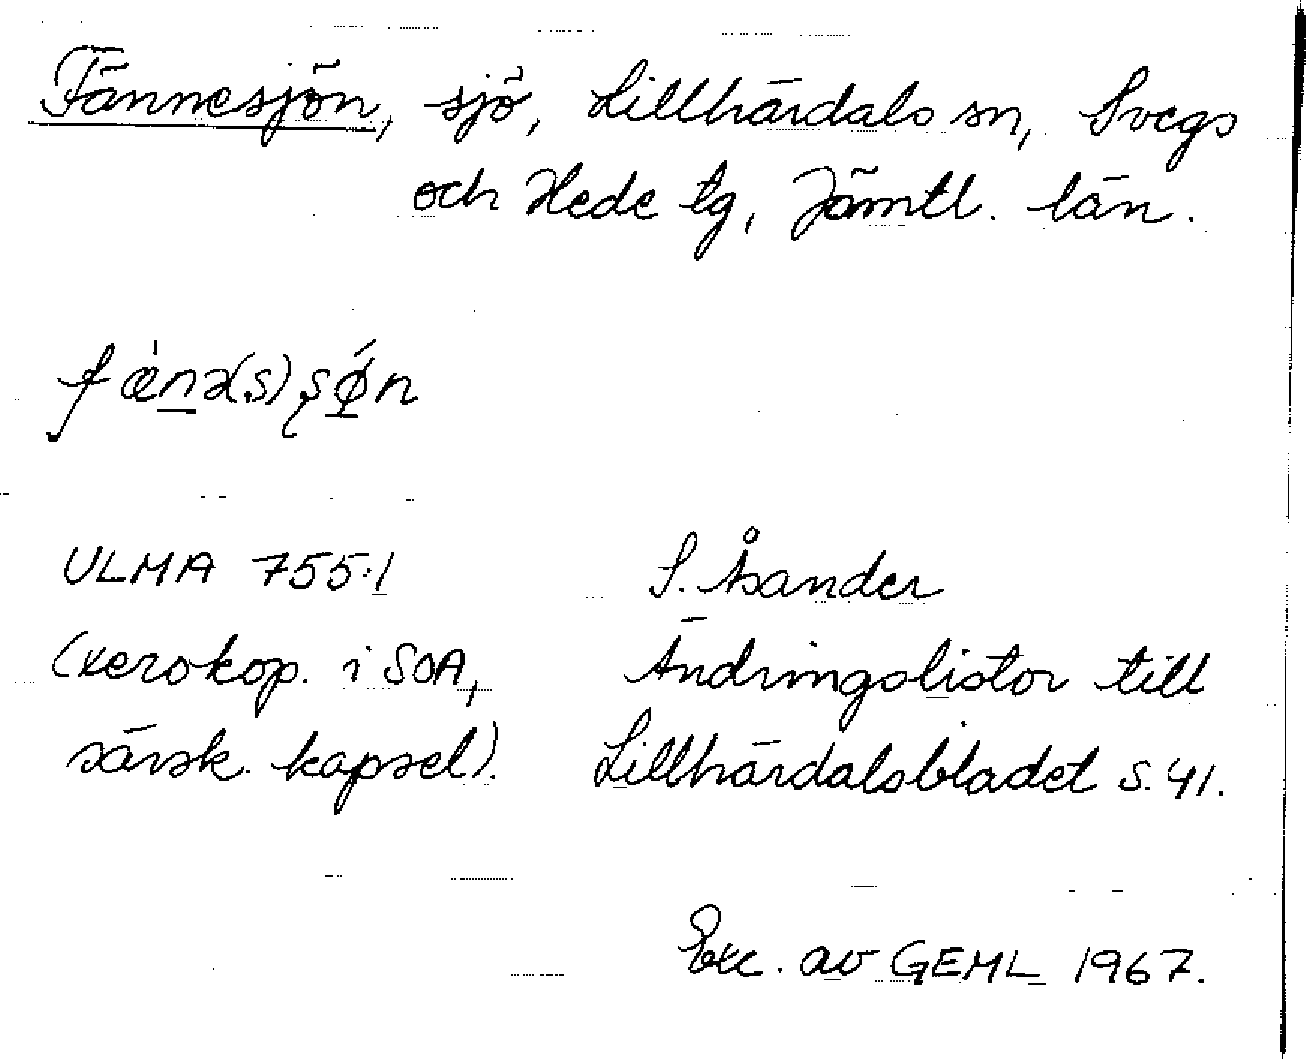 Fännesjön, sjö, Lillhärdals sn, Svegs
och Hede tg, Jämtl. län.
fæ̀nə(s)ʂǿn
ULMA 755:1 S. Åsander
(xerokop. i SOA, Ändringslistor till
särsk. kapsel). Lillhärdalsbladet s. 41.
Exc. av GEML 1967.